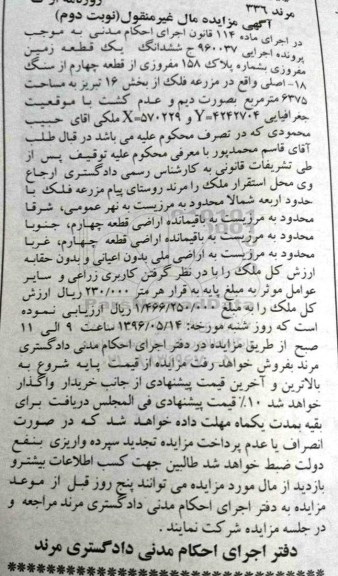 مرند ۳۳۶
آگهی مزایده مال غیرمنقول(نوبت دوم)
در اجرای ماده ۱۱۴ قانون اجرای احکام مدنی به موجب
پرونده اجرایی ۹۶۰۰۳۷ ج ششدانگ یک قطعه زمین
مفروزی بشماره پلاک ۱۵۸ مفروزی از قطعه چهارم از سنگ
۱۸- اصلی واقع در مزرعه فلک از بخش ۱۶ تبریز به مساحت
۶۳۷۵ مترمربع بصورت دیم و عدم کشت با موقعیت
جغرافیایی Y=۴۲۴۲۷۰۴ و X=۵۷۰۲۲۹ ملکی اقای حبیب
محمودی که در تصرف محکوم علیه می باشد در قبال طلب
آقای قاسم محمدپور با معرفی محکوم علیه توقیف پس از
طی تشریفات قانونی به کارشناس رسمی دادگستری ارجاع
وی محل استقرار ملک را مرند روستای پیام مزرعه فلک با
حدود اربعه شمالا محدود به مرزیست به نهر عمومی، شرقا
محدود به مرزیست به باقیمانده اراضی قطعه چهارم، جنوبا
محدود به مرزیست به باقیمانده اراضی قطعه چهارم، غربا
محدود به مرزیست به اراضی ملی بدون اعیانی و بدون حقابه
ارزش کل ملک را با در نظر گرفتن کاربری زراعی و سایر
عوامل موثر به مبلغ پایه به قرار هر متر ۲۳۰/۰۰۰ ریال ارزش
کل ملک را به مبلغ ۱/۴۶۶/۲۵۰/۰۰۰ ریال ارزیابی نموده
است که روز شنبه مورخه: ۱۳۹۶/۰۵/۱۴ ساعت ۹ الی ۱۱
صبح از طریق مزایده در دفتر اجرای احکام مدنی دادگستری
مرند بفروش خواهد رفت مزایده از قیمت پایه شروع به
بالاترین و آخرین قیمت پیشنهادی از جانب خریدار واگذار
خواهد شد ۱۰٪ قیمت پیشنهادی فی المجلس دریافت برای
بقیه بمدت یکماه مهلت داده خواهد شد که در صورت
انصراف یا عدم پرداخت مزایده تجدید سپرده واریزی بنفع
دولت ضبط خواهد شد طالبین جهت کسب اطلاعات بیشتر و
بازدید از مال مورد مزایده می توانند پنج روز قبل از موعد
مزایده به دفتر اجرای احکام مدنی دادگستری مرند مراجعه و
در جلسه مزایده شرکت نمایند.
دفتر اجرای احکام مدنی دادگستری مرند